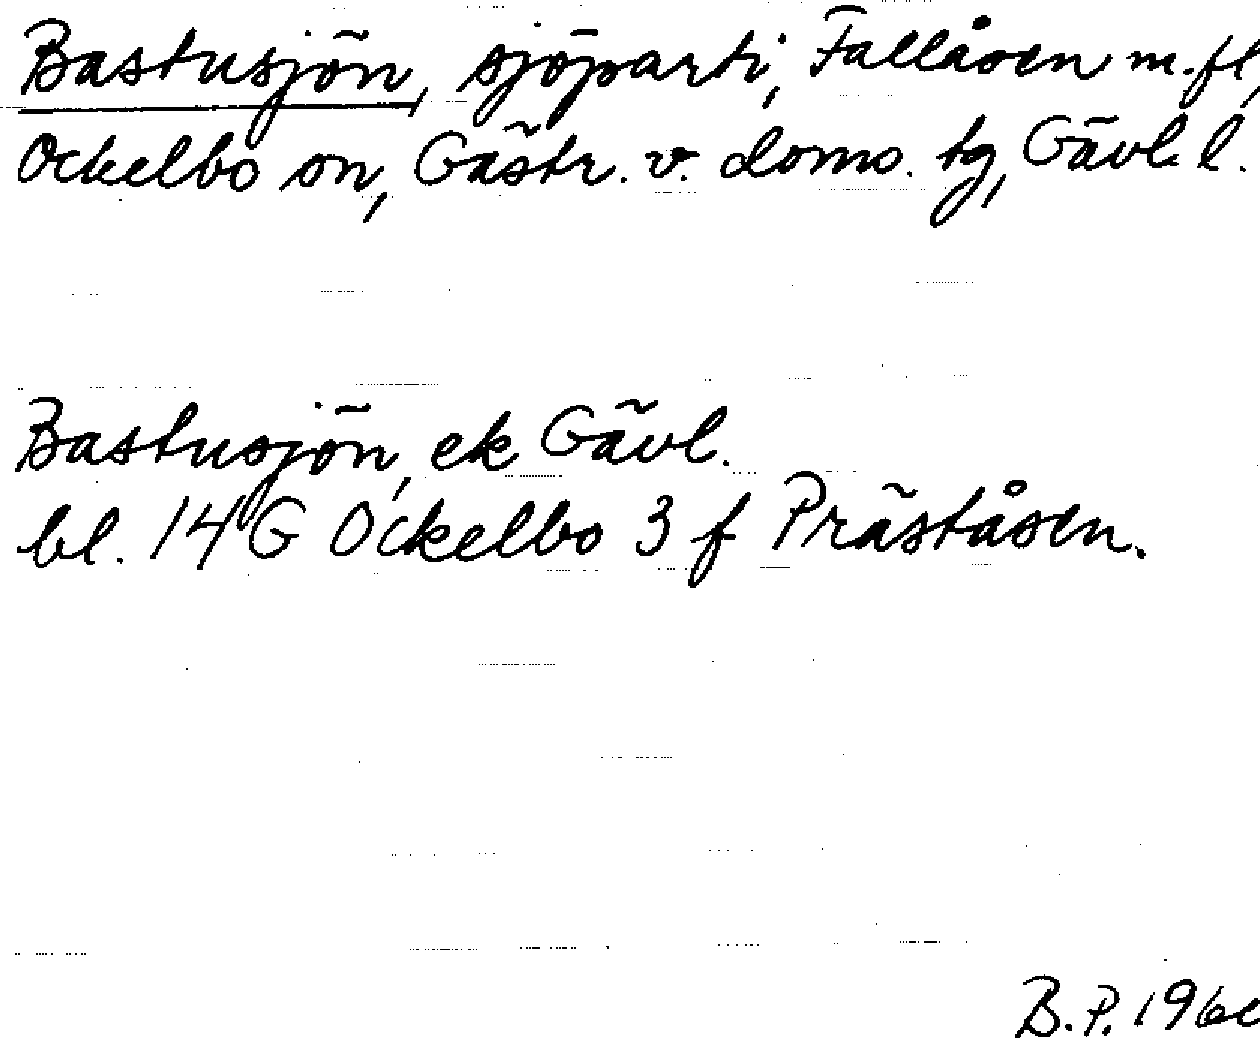 Bastusjön, sjöparti, Fallåsen m.fl,
Ockelbo sn, Gästr. v. doms. tg, Gävl. l.
Bastusjön, ek Gävl.
bl. 14 G Ockelbo 3 f Präståsen.
B.P. 196